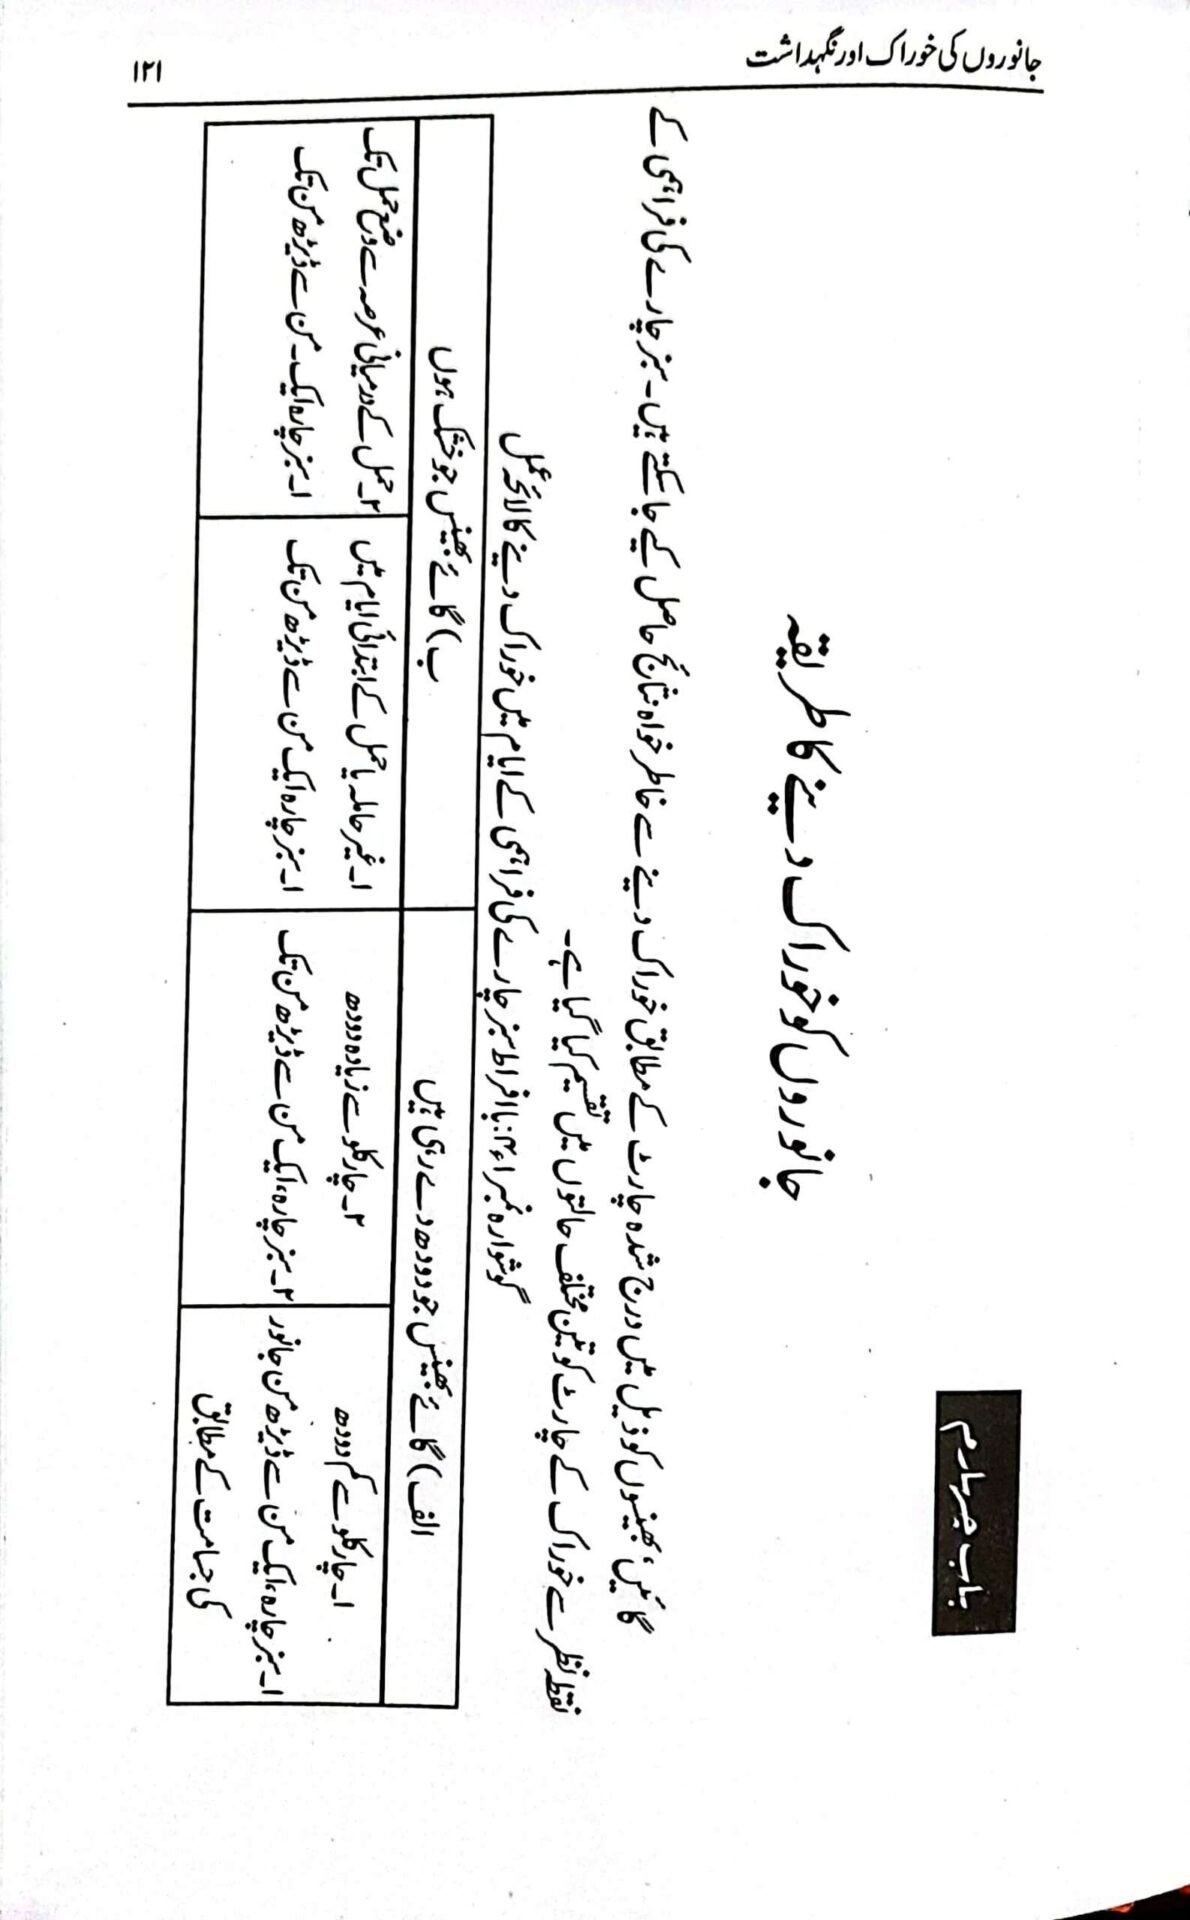 جانوروں کی خوراک اور نگہداشت
۱۲۱
باب چہارم
جانوروں کو خوراک دینے کا طریقہ
گائیں، بھینسوں کو ذیل میں درج شدہ چارٹ کے مطابق خوراک دینے سے خاطر خواہ نتائج حاصل کیے جا سکتے ہیں۔ سبز چارے کی فراہمی کے
نقطہ نظر سے خوراک کے چارٹ کو تین مختلف حالتوں میں تقسیم کیا گیا ہے۔
گوشوارہ نمبر ۴،۱: با افراط سبز چارے کی فراہمی کے ایام میں خوراک دینے کا لائحہ عمل
الف) گائے بھینس جو دودھ دے رہی ہیں
ب) گائے بھینس جو خشک ہوں
۱۔ چار کلو سے کم دودھ
۲۔ چار کلو سے زیادہ دودھ
۱۔ غیر حاملہ یا حمل کے ابتدائی ایام میں
۲۔ حمل کے درمیانی عرصہ سے وضع حمل تک
۱۔ سبز چارہ، ایک من سے ڈیڑھ من جانور
کی جسامت کے مطابق
۲۔ سبز چارہ، ایک من سے ڈیڑھ من تک
۱۔ سبز چارہ ایک من سے ڈیڑھ من تک
۱۔ سبز چارہ ایک۔ من سے ڈیڑھ من تک